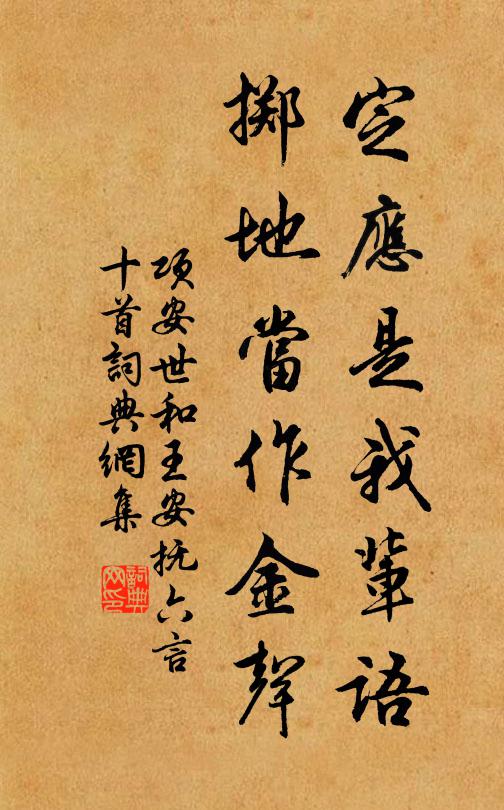 定應是我輩語
擲地當作金聲
項安世和王安抚六言
十首詞典網集
詞典网印